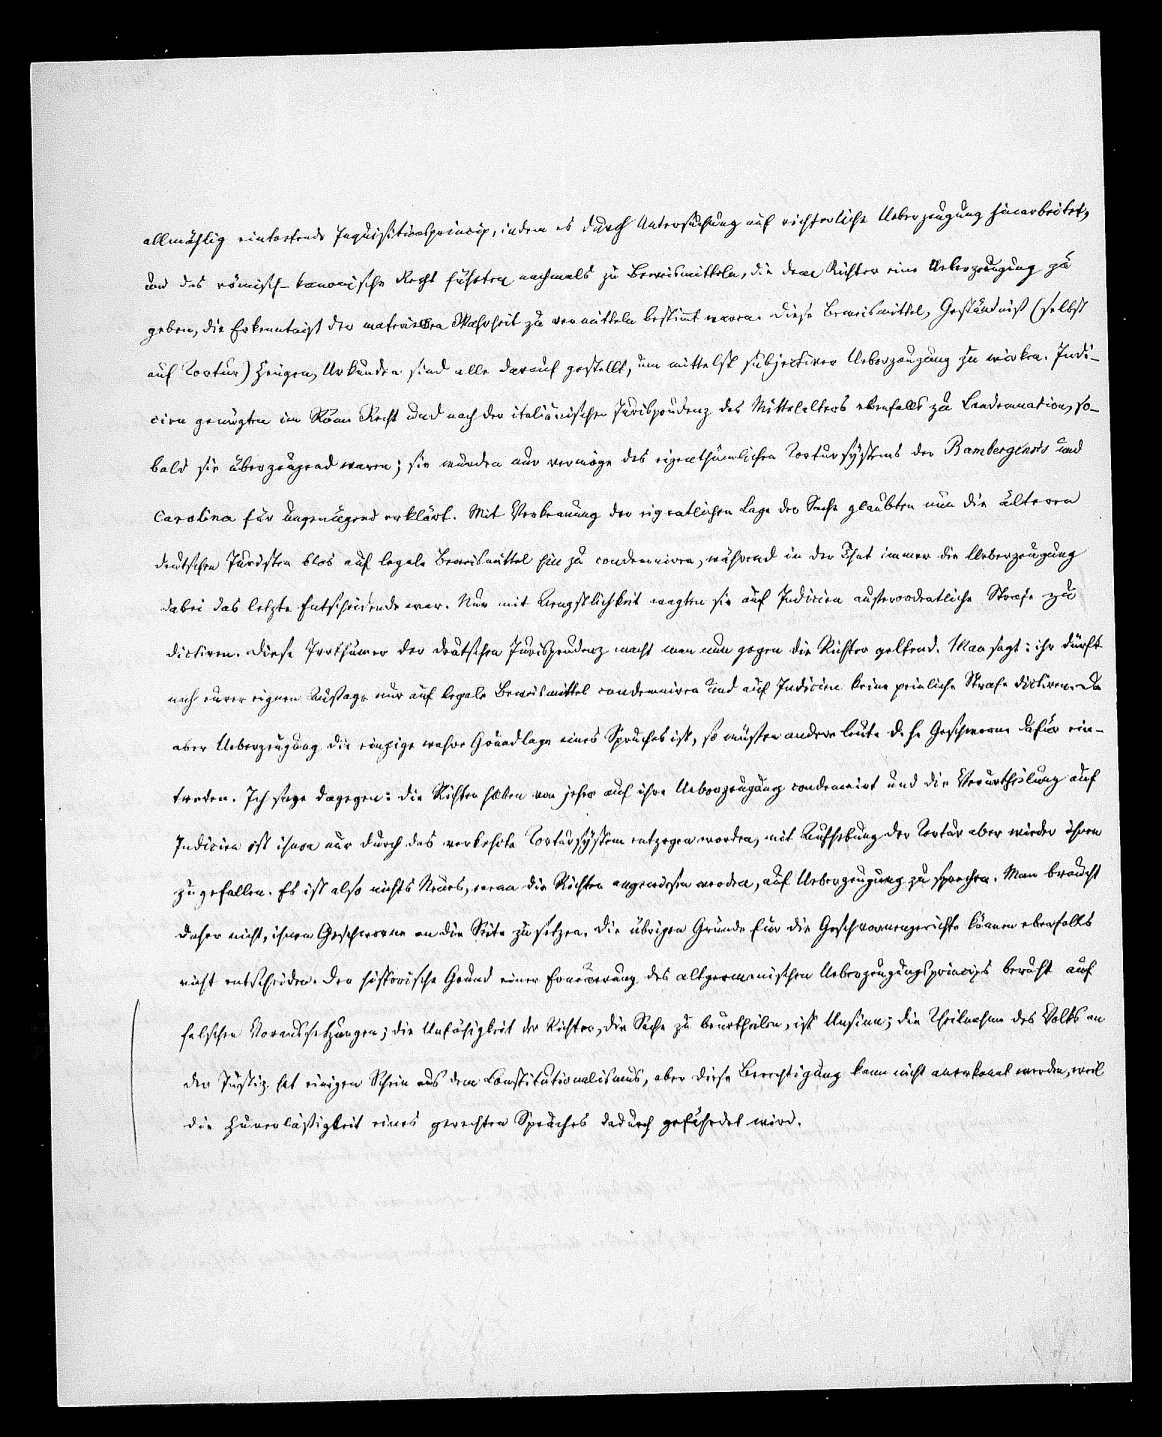 allmählig eintretende Inquisitionsprincip, indem es durch Untersuchung auf richterliche Ueberzeugung hinarbeitet,
und das römisch-kanonische Recht führten nochmals zu Beweismitteln, die dem Richter eine Ueberzeugung zu
geben, die Erkenntniß der materiellen Wahrheit zu vermitteln bestimmt waren. Diese Beweismittel, Geständniß (selbst
auf Tortur) Zeugen, Urkunden sind alle darauf gestellt, um mittelst subjectiver Ueberzeugung zu wirken. Indi-
cien genügten im Röm Recht und nach der italiänischen Jurisprudenz des Mittelalters ebenfalls zu Condemnation, so-
bald sie überzeugend waren; sie wurden nur vermöge des eigenthümlichen Tortursystems der Bambergensis und
Carolina für ungenügend erklärt. Mit Verkennung der eigentlichen Lage der Sache glaubten nun die älteren
deutschen Juristen blos auf legale Beweismittel hin zu condemniren, während in der That immer die Ueberzeugung
dabei das letzte Entscheidende war. Nur mit Aengstlichkeit wagten sie auf Indicien außerordentliche Strafe zu
dictiren. Diese Irrthümer der deutschen Jurisprudenz macht man nun gegen die Richter geltend. Man sagt: ihr dürft
nach eurer eignen Aussage nur auf legale Beweismittel condemniren und auf Indicien keine peinliche Strafe dictiren. Da
aber Ueberzeugung die einzige wahre Grundlage eines Spruches ist, so müssen andere Leute d. h. Geschworne dafür ein-
treten. Ich sage dagegen: die Richter haben von jeher auf ihre Ueberzeugung condemnirt und die Verurtheilung auf
Indicien ist ihnen nur durch das verkehrte Tortursystem entzogen worden, mit Aufhebung der Tortur aber wieder ihnen
zugefallen. Es ist also nichts Neues, wenn die Richter angewiesen werden, auf Ueberzeugung zu sprechen. Man braucht
daher nicht, ihnen Geschworne an die Seite zu setzen. Die übrigen Gründe für die Geschwornengerichte können ebenfalls
nicht entscheiden. Der historische Grund einer Erneuerung des altgermanischen Ueberzeugungsprincips beruht auf
falschen Voraussetzungen; die Unfähigkeit der Richter, die Sache zu beurtheilen, ist Unsinn; die Theilnahme des Volks an
der Justiz hat einigen Schein aus dem Constitutionalismus, aber diese Berechtigung kann nicht anerkannt werden, weil
die Zuverlässigkeit eines gerechten Spruches dadurch gefährdet wird.